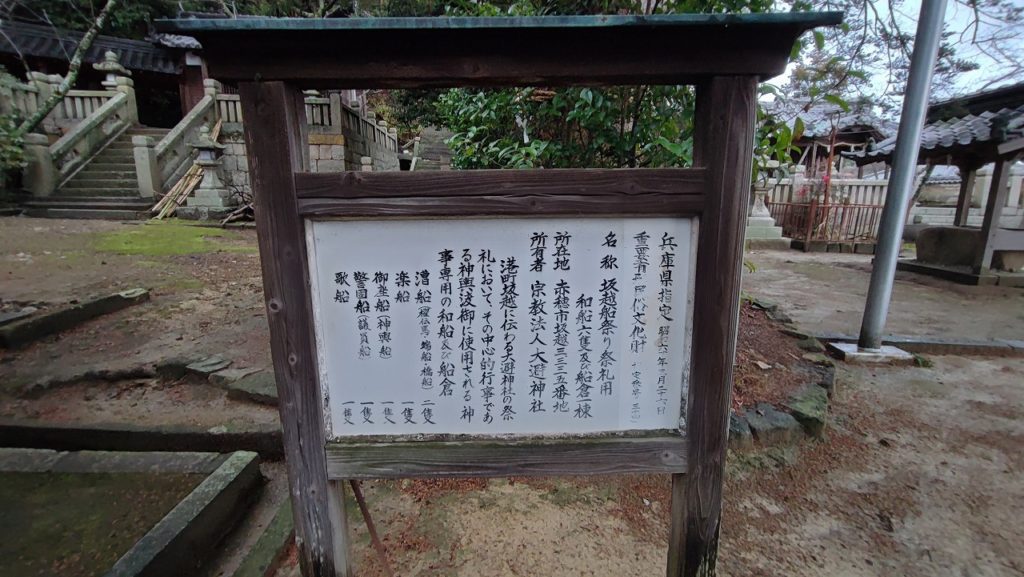 兵庫県指定
重要有形民俗文化財
名称 坂越船祭り祭礼用
和船六隻及び船倉一棟
所在地 赤穂市坂越一三三五番地
所有者 宗教法人大避神社
港町坂越に伝わる大避神社の祭
礼において、その中心的行事であ
る神輿渡御に使用される神
事専用の和船及び船倉
漕船 二隻
楽船 一隻
御座船(神輿船) 一隻
警固船(議員船) 一隻
歌船 一隻